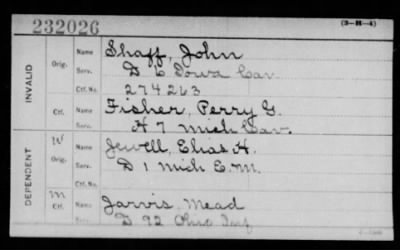 232026
(3-H-4)
INVALID
Orig. Name Shaff, John
Serv. D 6 Iowa Cav.
Ctf. No. 274263
Ctf. Name Fisher, Perry G.
Serv. H 7 Mich Cav.
DEPENDENT
W Orig. Name Jewell, Elias H.
Serv. D 1 Mich E. M.
Ctf. No.
M Ctf. Name Jarvis, Mead
Serv. D 92 Ohio Inf